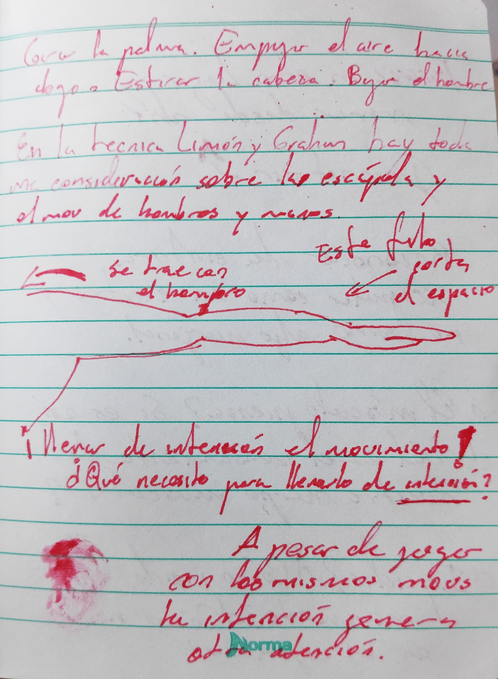 Girar la palma. Empujar el aire hacia
abajo. Estirar la cabeza. Bajar el hombro
En la tecnica Limón y Graham hay toda
una consideración sobre la escápula y
el mov de hombros y manos.
Este
corta
el espacio
Se trae con
el hombro
¡llenar de intención el movimiento!
¿Qué necesito para llenarlo de intención?
A pesar de jugar
con los mismos movs
la intención genera
otra atención.
Norma